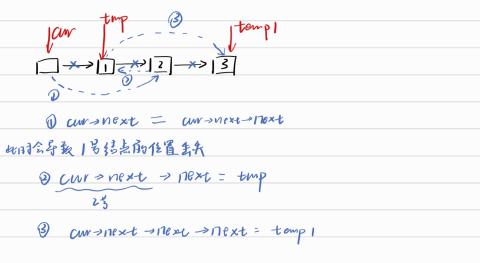 cur
tmp
③
temp1
1
2
3
②
①
① cur→next = cur→next→next
此时会导致 1号结点的位置丢失
② cur→next → next = tmp
2号
③ cur→next→next→next = temp1